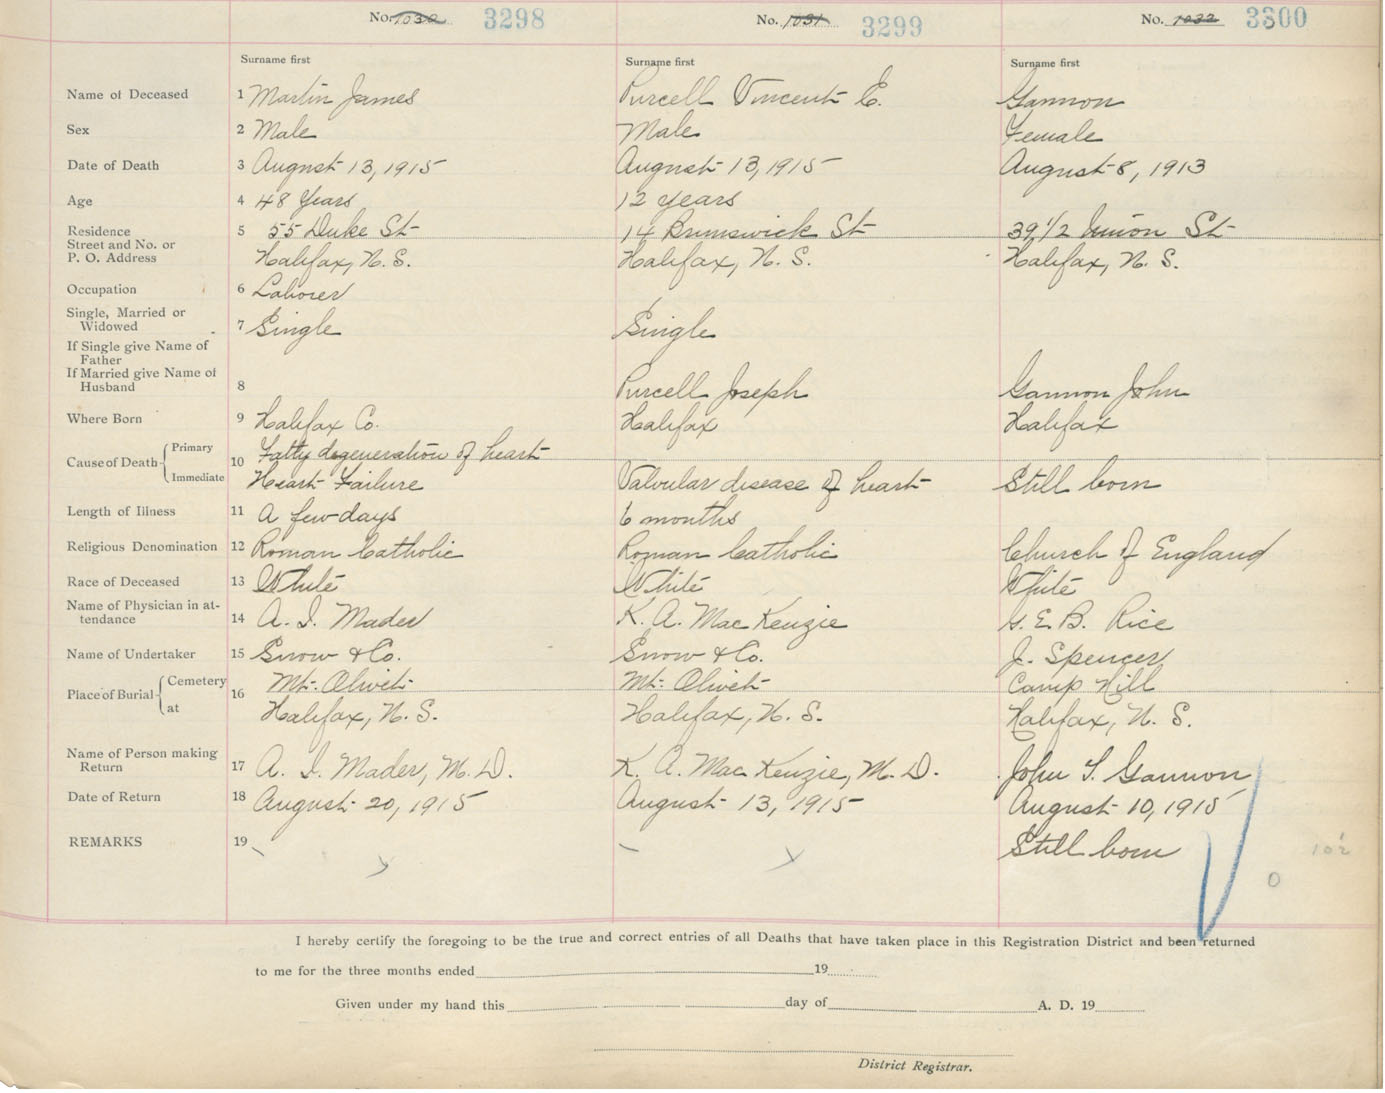 No. 1030 3298 No. 1031 3299 No. 1032 3300
Surname first Surname first Surname first
Name of Deceased 1 Martin James Purcell Vincent E. Gannon
Sex 2 Male Male Female
Date of Death 3 August 13, 1915 August 13, 1915 August 8, 1913
Age 4 48 Years 12 years
Residence 5 55 Duke St 14 Brunswick St 39 1/2 Union St
Street and No. or
P. O. Address Halifax, N. S. Halifax, N. S. Halifax, N. S.
Occupation 6 Laborer
Single, Married or
Widowed 7 Single Single
If Single give Name of
Father
If Married give Name of
Husband 8 Purcell Joseph Gannon John
Where Born 9 Halifax Co. Halifax Halifax
Cause of Death Primary 10 Fatty degeneration of heart
Immediate Heart Failure Valvular disease of heart Still born
Length of Illness 11 A few days 6 months
Religious Denomination 12 Roman Catholic Roman Catholic Church of England
Race of Deceased 13 White White White
Name of Physician in at-
tendance 14 A. I. Mader K. A. MacKenzie G. E. B. Rice
Name of Undertaker 15 Snow & Co. Snow & Co. J. Spencer
Place of Burial Cemetery 16 Mt. Olivet Mt. Olivet Camp Hill
at Halifax, N. S. Halifax, N. S. Halifax, N. S.
Name of Person making
Return 17 A. I. Mader, M. D. K. A. MacKenzie, M. D. John T. Gannon
Date of Return 18 August 20, 1915 August 13, 1915 August 10, 1915
REMARKS 19 Still born
I hereby certify the foregoing to be the true and correct entries of all Deaths that have taken place in this Registration District and been returned
to me for the three months ended 19
Given under my hand this day of A. D. 19
District Registrar.